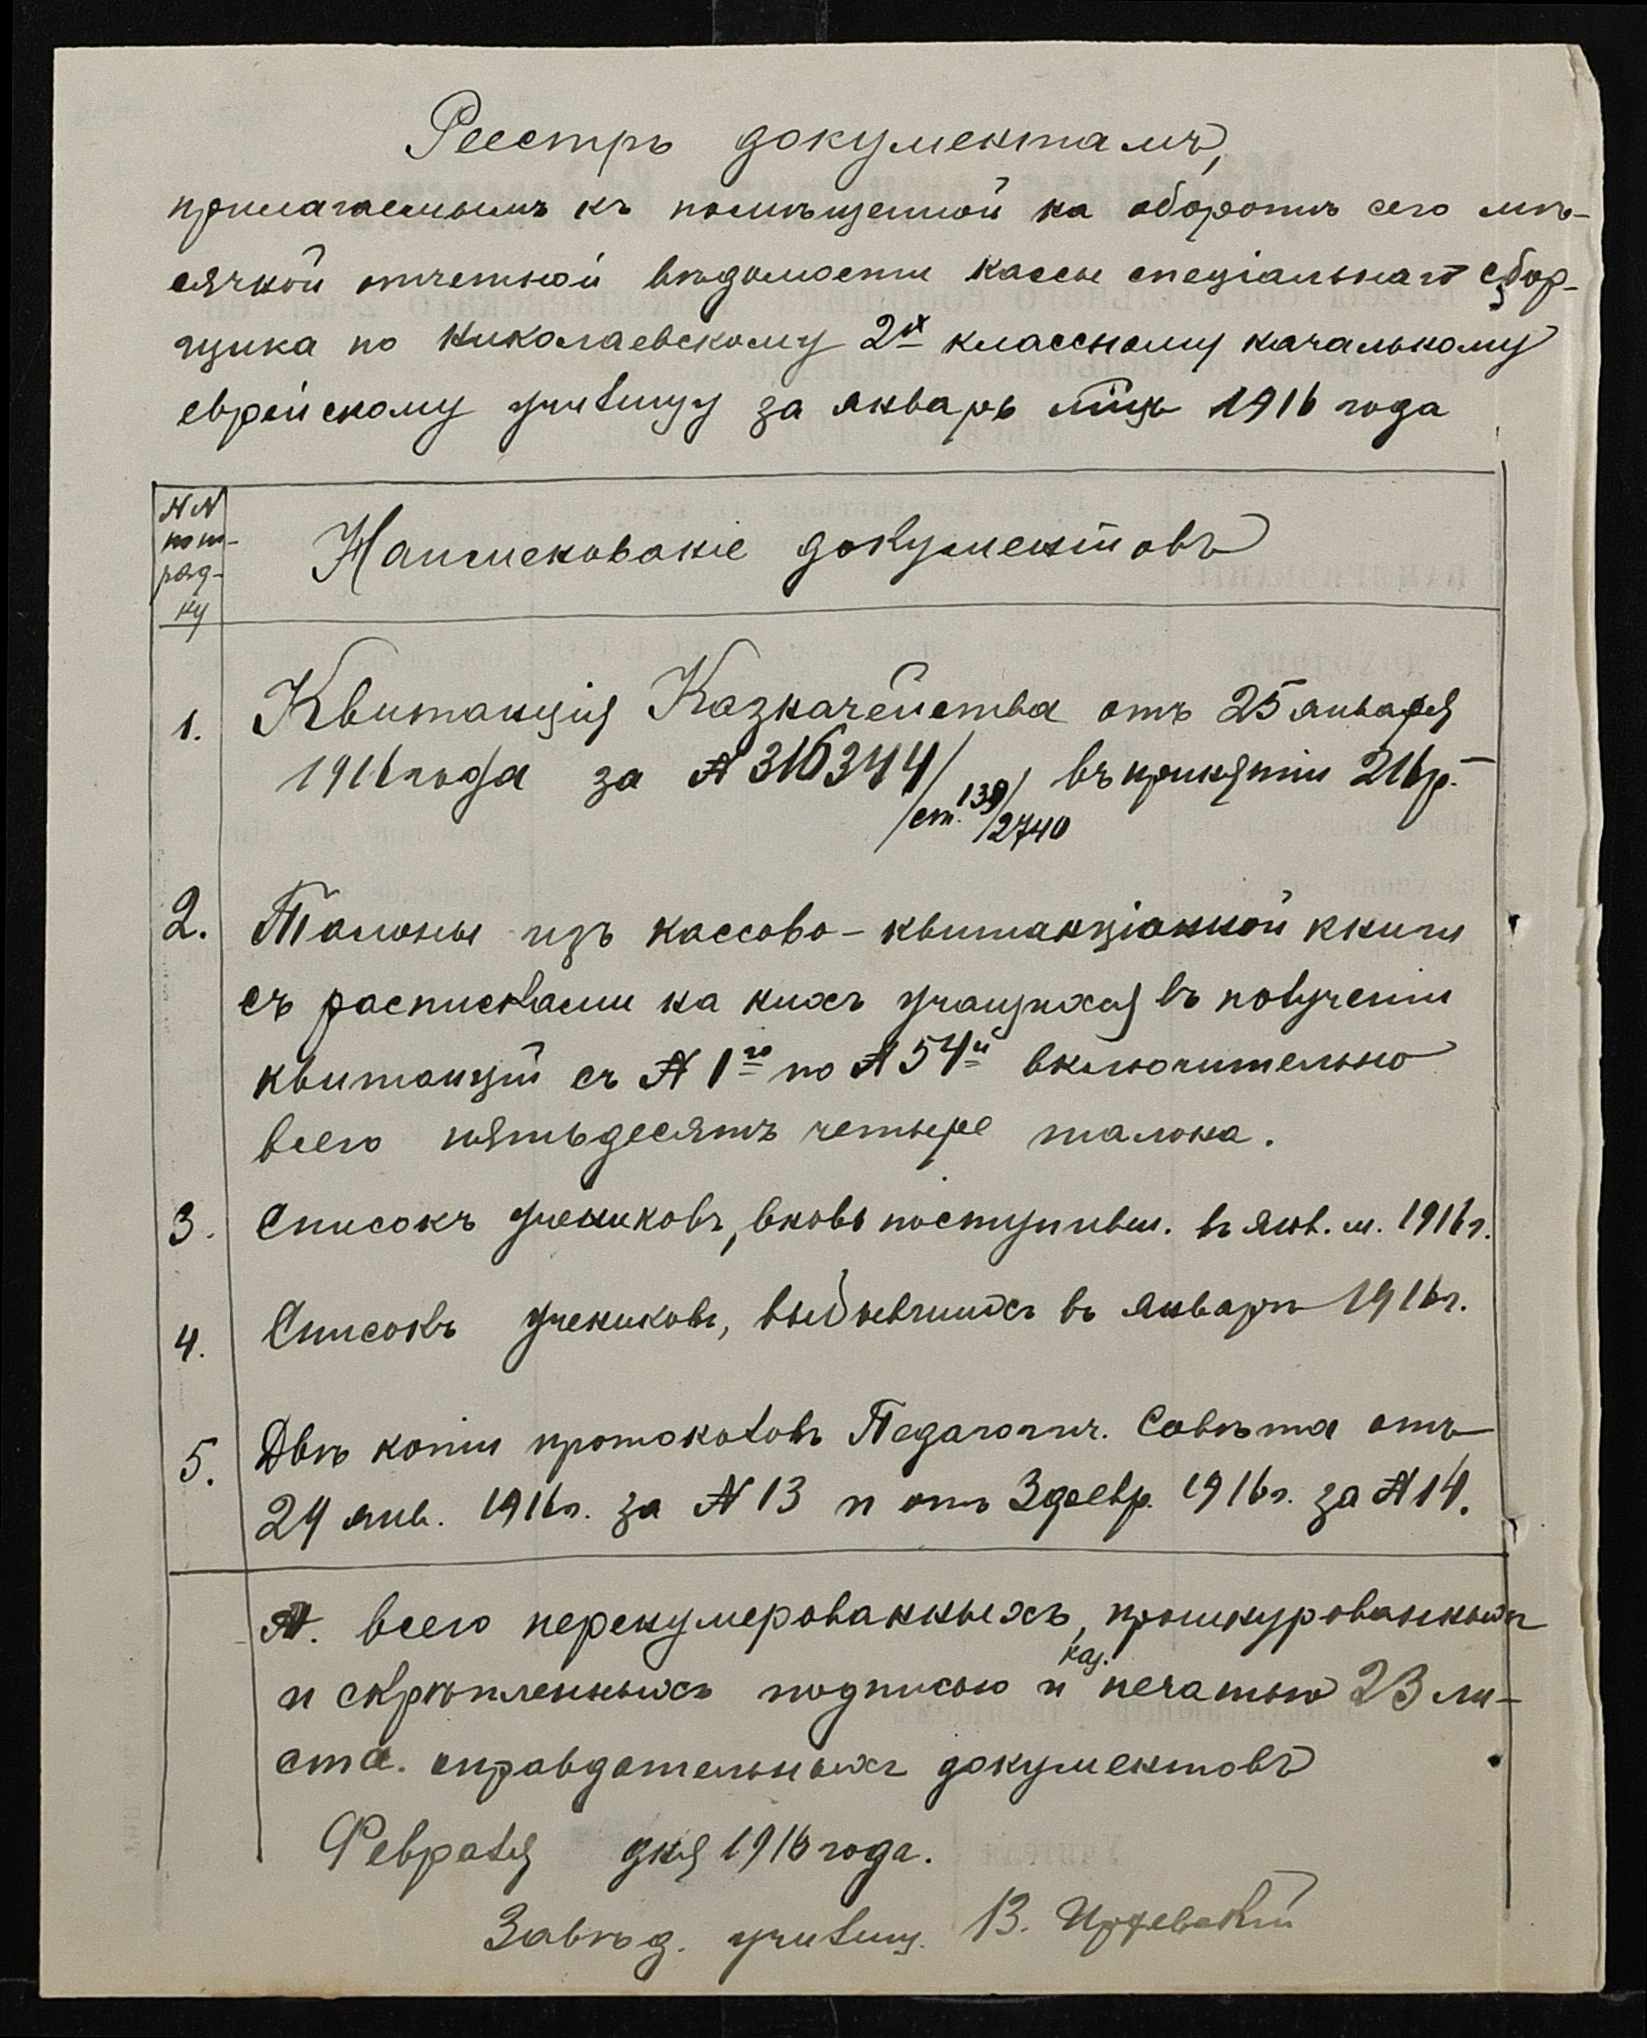 Реестръ документамъ,
прилагаемымъ къ помѣщенной на оборотѣ сего мѣ-
сячной отчетной вѣдомости кассы спеціальнаго сбор-
щика по Николаевскому 2х классному начальному
еврейскому училищу за январь мцъ 1916 года
№№
по по-
ряд-
ку
Наименованіе документовъ
1. Квитанція Казначейства отъ 25 января
1916 года за № 316344/ст. 139/2740 въ принятіи 216 р. –
2. Талоны изъ кассово-квитанціонной книги
съ расписками на нихъ учащихся въ полученіи
квитанцій съ № 1го по № 54й включительно
всего пятьдесятъ четыре талона.
3. Списокъ учениковъ, вновь поступивш. въ янв. м. 1916 г.
4. Списокъ учениковъ, выбывшихъ въ январѣ 1916 г.
5. Двѣ копіи протоколовъ Педагогич. Совѣта отъ
24 янв. 1916 г. за № 13 и отъ 3 февр. 1916 г. за № 14.
А. всего перенумерованныхъ, прошнурованныхъ
и скрѣпленныхъ подписью и каз. печатью 23 ли-
ста. оправдательныхъ документовъ
Февраля дня 1916 года.
Завѣд. училищ. В.